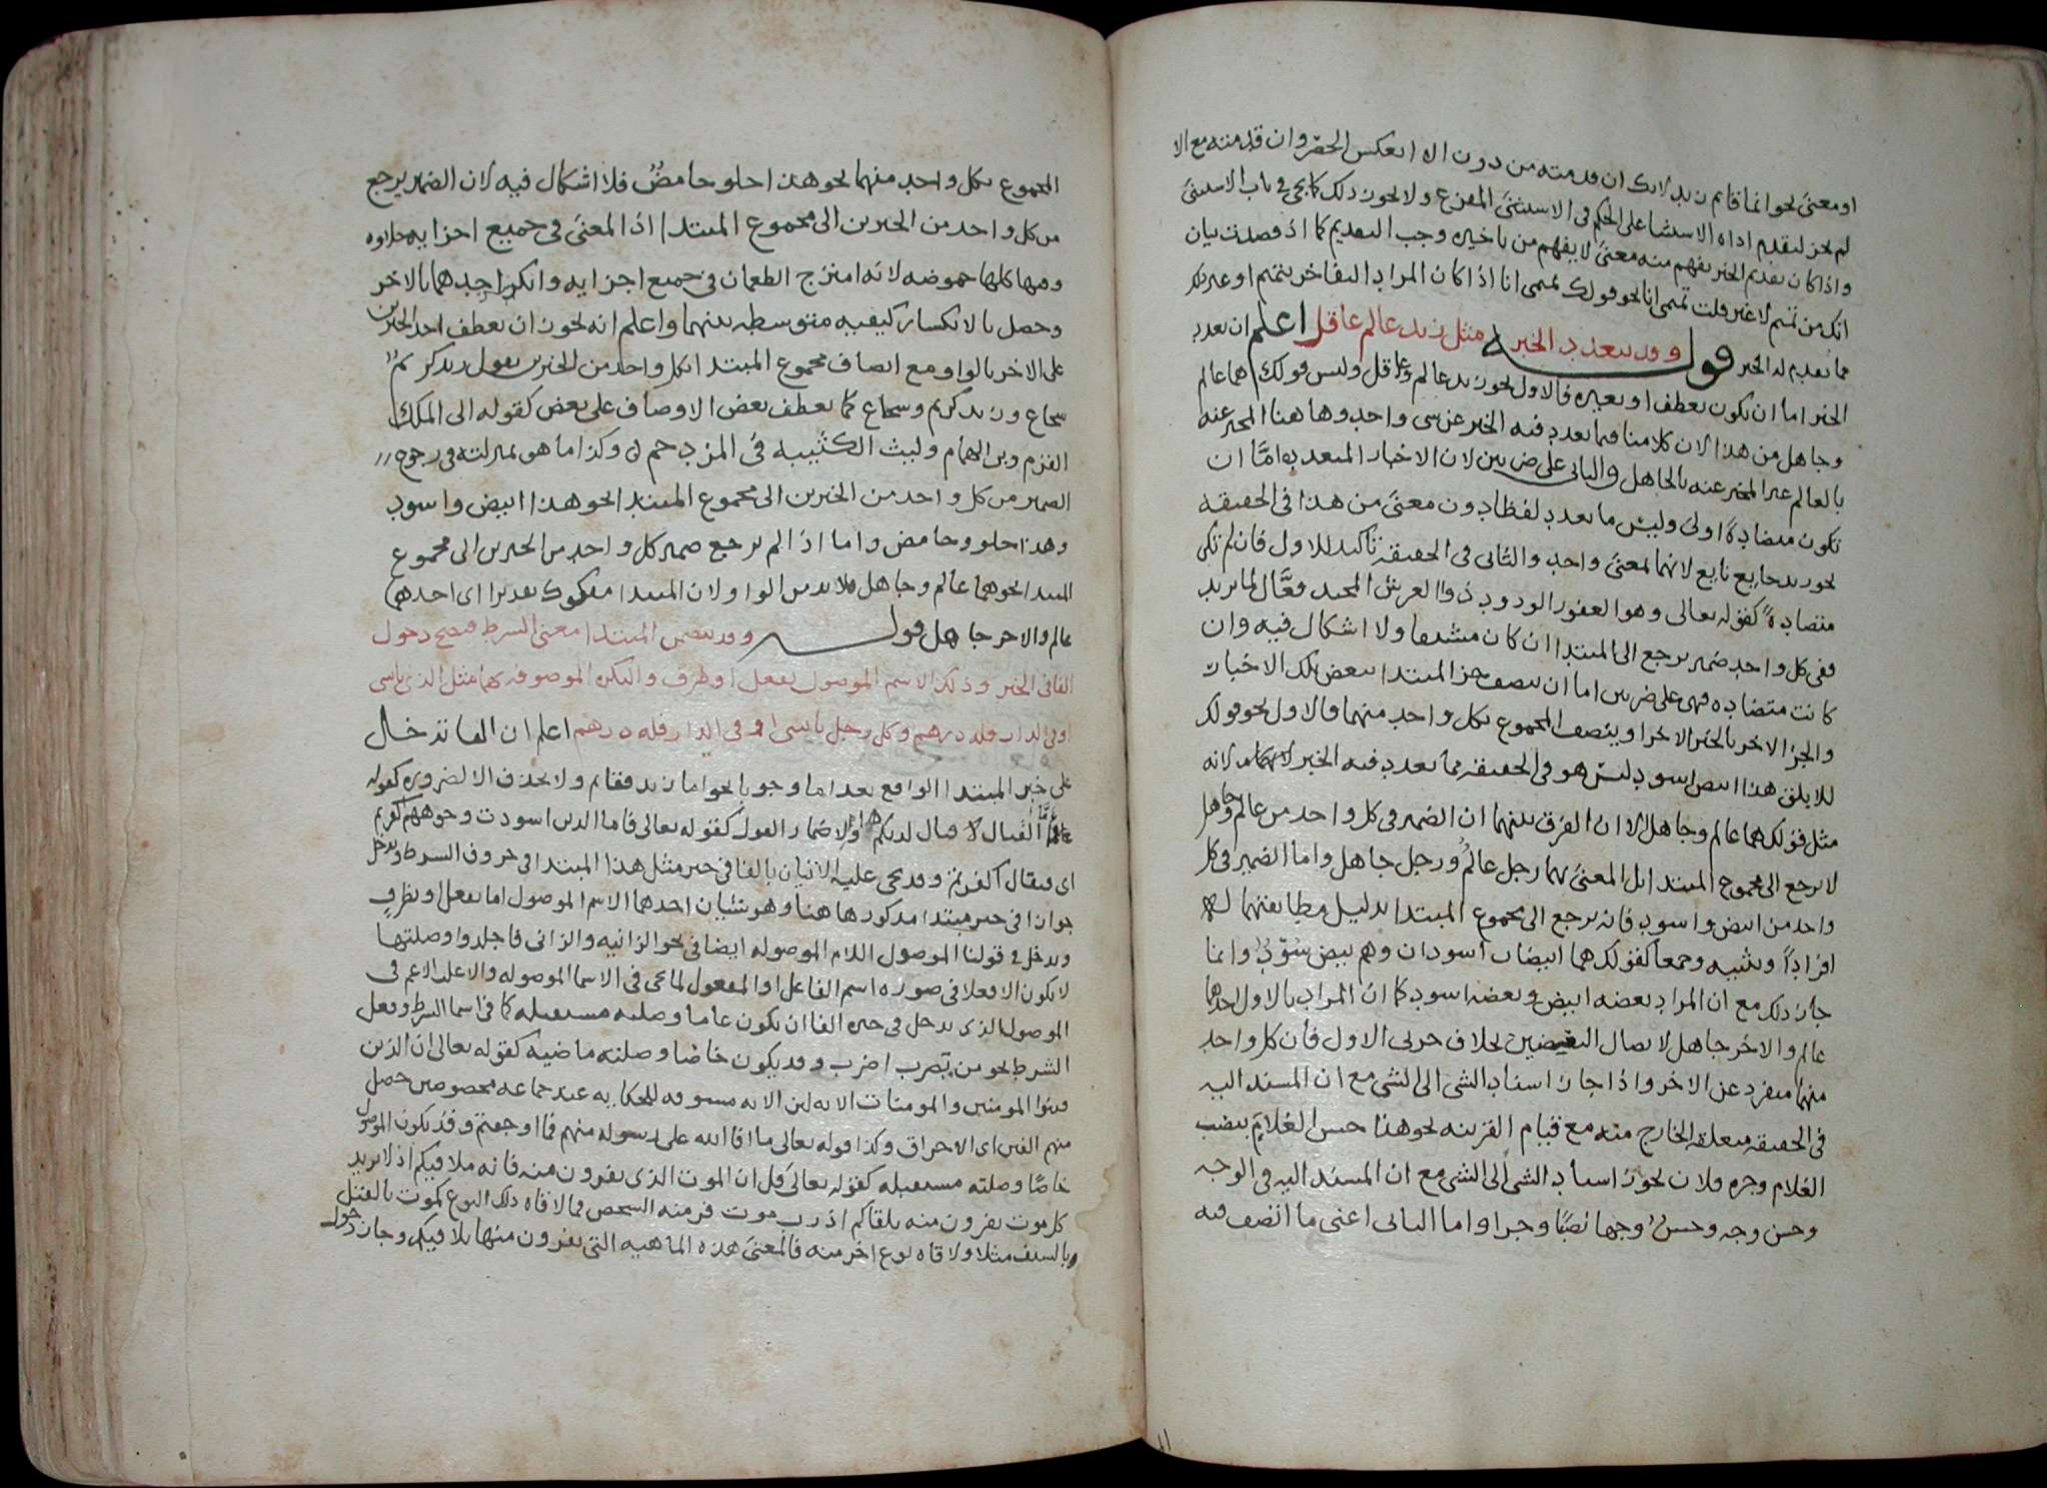 او معنى نحو انما قائم زيد لانك ان قدمته من دون الا انعكس الحصر وان قدمته مع الا
لم يجز لتقدم اداه الاستثنا على الحكم في الاستثنى المفرغ ولا يجوز ذلك كما يجي في باب الاستثنى
واذا كان تقديم الخبر يفهم منه معنى لا يفهم من تاخيره وجب التقديم كما اذا قصدت بيان
انك من تميم لا غير قلت تميمى انا نحو قولك تميمى انا اذا كان المراد التفاخر بتميم او غير ذلك
مما يقدم له الخبر قوله وقد يتعدد الخبر مثل زيد عالم عاقل اعلم ان تعدد
الخبر اما ان يكون بعطف او بغيره فالاول نحو زيد عالم وعاقل وليس قولك هما عالم
وجاهل من هذا لان كلامنا فيما تعدد فيه الخبر عن شي واحد وهاهنا المخبر عنه
بالعالم غير المخبر عنه بالجاهل والثانى على ضربين لان الاخبار المتعدده اما ان
تكون متضادة اولى وليس ما تعدد لفظا دون معنى من هذا في الحقيقه
نحو زيد جايع نايع لانهما لمعنى واحد والثانى في الحقيقه تاكيد للاول فان لم تكن
متضادة كقوله تعالى وهو الغفور الودود ذو العرش المجيد فعال لما يريد
ففى كل واحد ضمير يرجع الى المبتدا ان كان مشتقا ولا اشكال فيه وان
كانت متضاده فهى على ضربين اما ان يتصف جز المبتدا ببعض تلك الاخبار
والجز الاخر بالخبر الاخر او يتصف المجموع بكل واحد منهما فالاول نحو قولك
للابلق هذا ابيض اسود ليس هو في الحقيقه مما تعدد فيه الخبر لانه
مثل قولك هما عالم وجاهل الا ان الفرق بينهما ان الضمير في كل واحد من عالم وجاهل
لا يرجع الى مجموع المبتدا بل المعنى هما رجل عالم ورجل جاهل واما الضمير في كل
واحد من ابيض واسود فانه يرجع الى مجموع المبتدا بدليل مطابقتهما له
افرادا وتثنيه وجمعا كقولك هما ابيضان اسودان وهم بيض سود وانما
جاز ذلك مع ان المراد بعضه ابيض وبعضه اسود كما ان المراد بالاول احدهما
عالم والاخر جاهل لاتصال البعضين بخلاف جزئى الاول فان كل واحد
منهما منفرد عن الاخر واذا جاز اسناد الشى الى الشى مع ان المسند اليه
في الحقيقه متعلقه الخارج منه مع قيام القرينه نحو هذا حسن الغلام بنصب
الغلام وجره فلان يجوز اسناد الشى الى الشى مع ان المسند اليه في الوجه
وحسن وجه وحسن وجها نصبا وجرا واما الثانى اعنى ما اتصف فيه
المجموع بكل واحد منهما نحو هذا حلو حامض فلا اشكال فيه لان الضمير يرجع
من كل واحد من الخبرين الى مجموع المبتدا اذ المعنى في جميع اجزايه حلاوه
وفيها كلها حموضه لانه امتزج الطعمان في جميع اجزايه وانكسر احدهما بالاخر
وحصل بالانكسار كيفيه متوسطه بينهما واعلم انه يجوز ان يعطف احد الخبرين
على الاخر بالواو مع اتصاف مجموع المبتدا بكل واحد من الخبرين تقول زيد كريم
شجاع وزيد كريم وشجاع كما يعطف بعض الاوصاف على بعض كقوله الى الملك
القرم وبن الهمام وليث الكتيبه في المزدحم وكذا ما هو بمنزلته في رجوع
الضمير من كل واحد من الخبرين الى مجموع المبتدا نحو هذا ابيض واسود
وهذا حلو وحامض واما اذا لم يرجع ضمير كل واحد من الخبرين الى مجموع
المبتدا نحو هما عالم وجاهل فلا بد من الواو لان المبتدا مفكوك تقديرا اى احدهما
عالم والاخر جاهل قوله وقد يتضمن المبتدا معنى الشرط فيصح دخول
الفا في الخبر وذلك الاسم الموصول بفعل او ظرف والنكره الموصوفه بهما مثل الذى ياتينى
او في الدار فله درهم وكل رجل ياتينى او في الدار فله درهم اعلم ان الفا تدخل
على خبر المبتدا الواقع بعد اما وجوبا نحو اما زيد فقائم ولا يحذف الا لضروره كقوله
فاما القتال لا قتال لديكم ولاضمار القول كقوله تعالى فاما الذين اسودت وجوههم اكفرتم
اى فيقال اكفرتم وقد يجى عليه الاتيان بالفا في خبر مثل هذا المبتدا في حروف الشرط وتدخل
جوازا في خبر مبتدا مذكور هاهنا وهو شيئان احدهما الاسم الموصول اما بفعل او بظرف
ويدخل في قولنا الموصول اللام الموصوله ايضا في نحو الزانيه والزانى فاجلدوا وصلتها
لا يكون الا فعلا في صوره اسم الفاعل او المفعول لما يجى في الاسما الموصوله والاغلب الاعم في
الموصول الذى يدخل في خبره الفا ان يكون عاما وصلته مستقبله كما في اسما الشرط وفعل
الشرط نحو من تضرب اضرب وقد يكون خاصا وصلته ماضيه كقوله تعالى ان الذين
فتنوا المومنين والمومنات الايه لان الايه مسوقه للحكايه عن جماعه مخصوصين حصل
منهم الفتن اى الاحراق وكذا قوله تعالى ما افا الله على رسوله منهم فما اوجفتم وقد يكون الموصول
خاصا وصلته مستقبله كقوله تعالى قل ان الموت الذى تفرون منه فانه ملاقيكم اذ لا يريد
كل موت تفرون منه يلقاكم اذ رب موت فر منه الشخص فما لاقاه ذلك النوع كموت بالقتل
وبالسيف مثلا ولاقاه نوع اخر منه فالمعنى هذه الماهيه التى تفرون منها تلاقيكم وجاز دخول